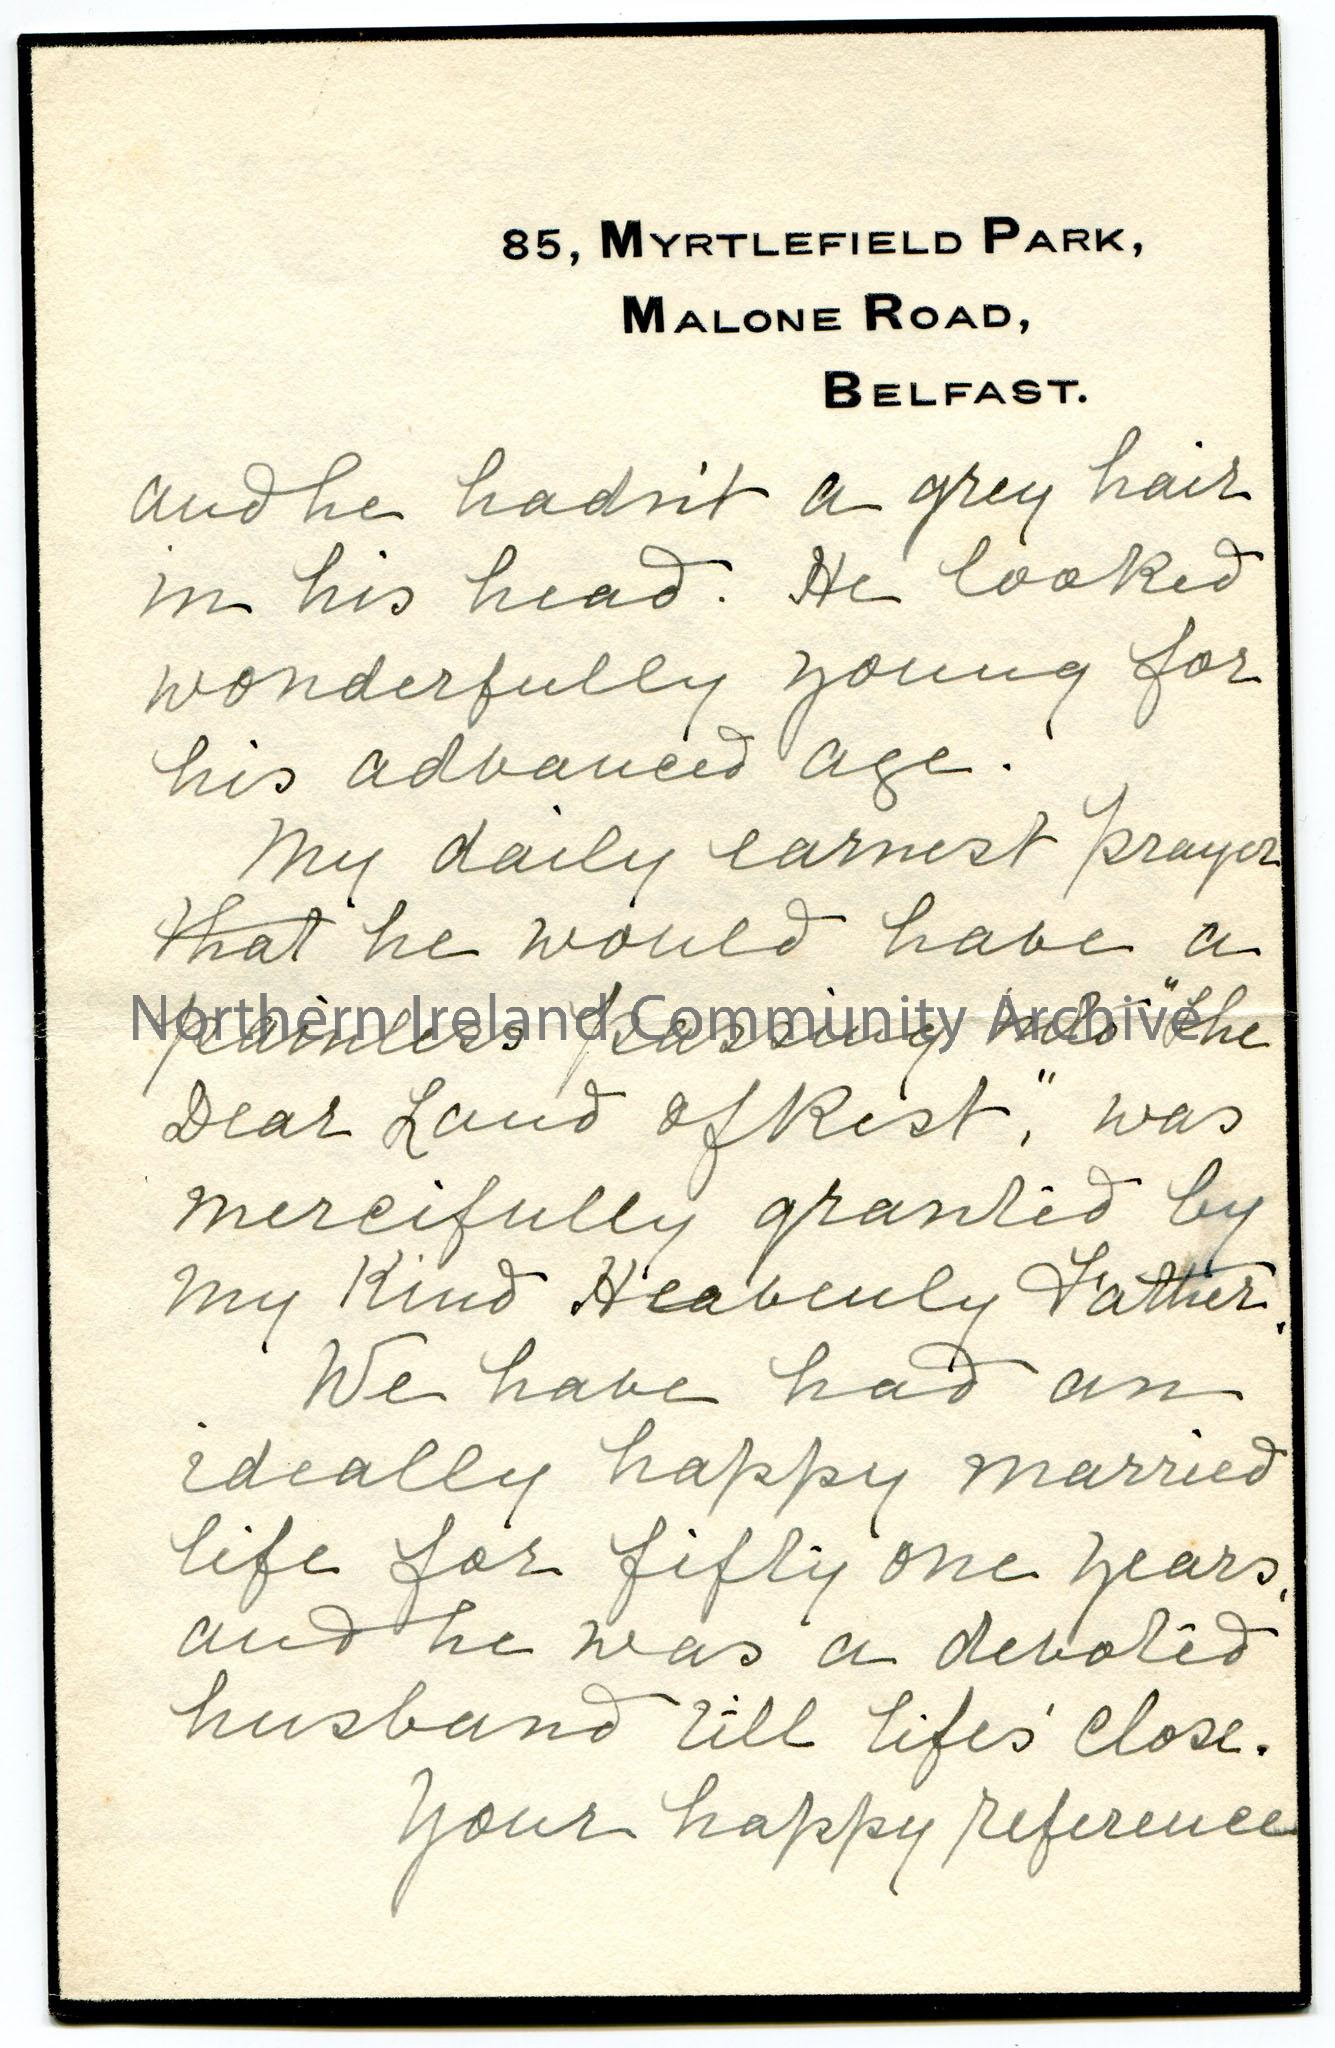 85, MYRTLEFIELD PARK,
MALONE ROAD,
BELFAST.
and he hadn't a grey hair
in his head. He looked
wonderfully young for
his advanced age.
My daily earnest prayer
that he would have a
painless passing into "the
Northern Ireland Community Archive
Dear Land of Rest", was
mercifully granted by
my Kind Heavenly Father.
We have had an
ideally happy married
life for fifty one years,
and he was a devoted
husband till life's close.
Your happy reference